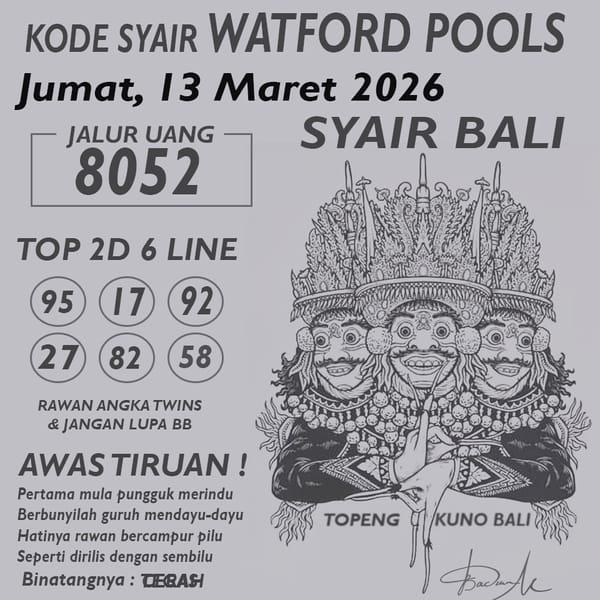 KODE SYAIR WATFORD POOLS
Jumat, 13 Maret 2026
SYAIR BALI
JALUR UANG
8052
TOP 2D 6 LINE
95 17 92
27 82 58
RAWAN ANGKA TWINS
& JANGAN LUPA BB
AWAS TIRUAN !
Pertama mula pungguk merindu
Berbunyilah guruh mendayu-dayu
Hatinya rawan bercampur pilu
Seperti dirilis dengan sembilu
Binatangnya :
TOPENG KUNO BALI